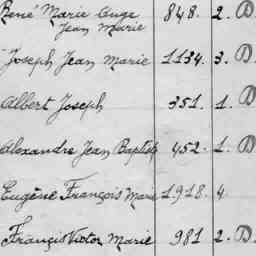 René Marie Ange 848. 2. D
Jean Marie
Joseph Jean Marie 1134. 3. D.
Albert Joseph 351. 1. D
Alexandre Jean Baptiste 452. 1. D
Eugène François Marie 1918. 4
François Victor Marie 981 2. D.